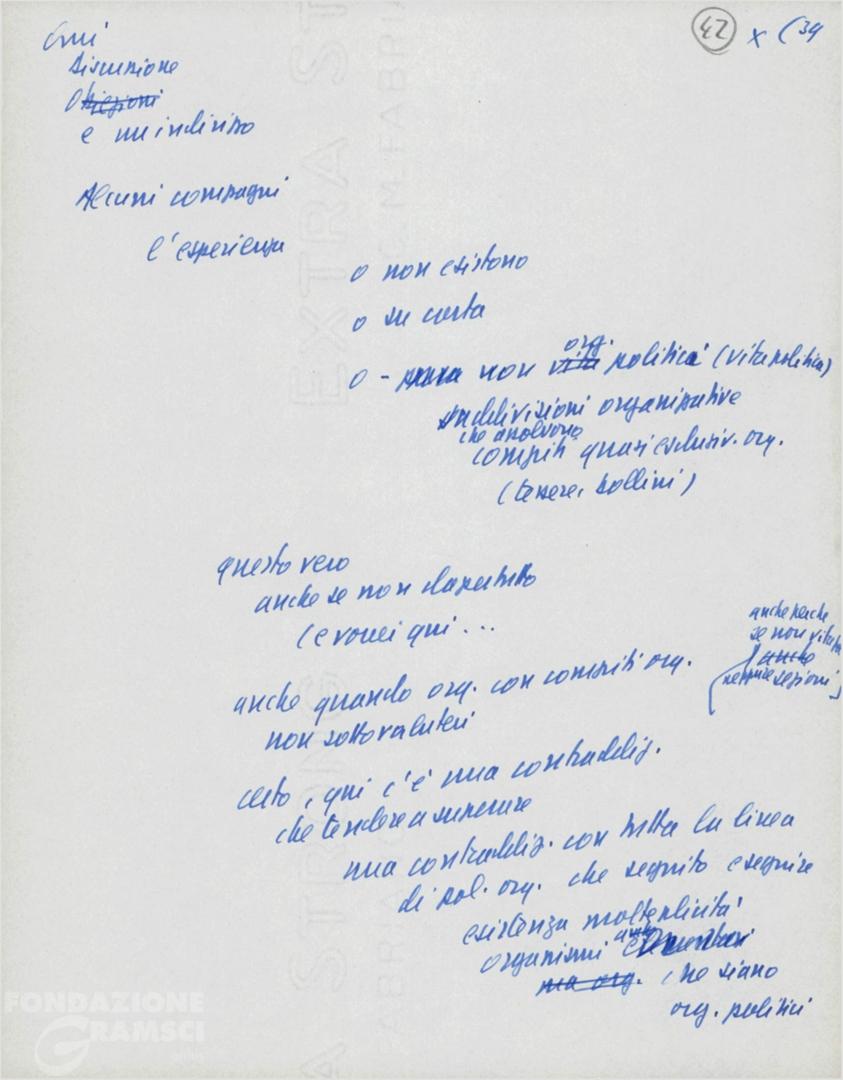 42 x (34
Discussione
Obiezioni
e un indirizzo
Alcuni compagni
l'esperienza
o non esistono
o su carta
org.
o - non vita politica (vita politica)
suddivisioni organizzative
che assolvono
compiti quasi esclusiv. org.
(tessere, bollini)
questo vero
anche se non dappertutto
(e vorrei qui ...
anche perche
se non vita
anche
sezioni)
anche quando org. con compiti org.
non sottovaluterei
certo, qui c'è una contraddiz.
che tendere a superare
una contraddiz. con tutta la linea
di pol. org. che seguito e seguire
esistenza molteplicità
organismi
ma org. che siano
org. politici
FONDAZIONE
GRAMSCI
STRONG EXTRA ST